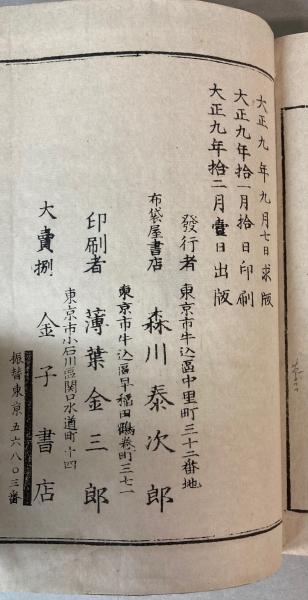 大正九年九月七日求版
大正九年拾一月拾日印刷
大正九年拾二月壹日出版
發行者 東京市牛込區中里町三十二番地
布袋屋書店 森川泰次郎
東京市牛込區早稲田鶴巻町三七一
印刷者 薄葉金三郎
東京市小石川區關口水道町十四
大賣捌 金子書店
振替東京五六八〇三番